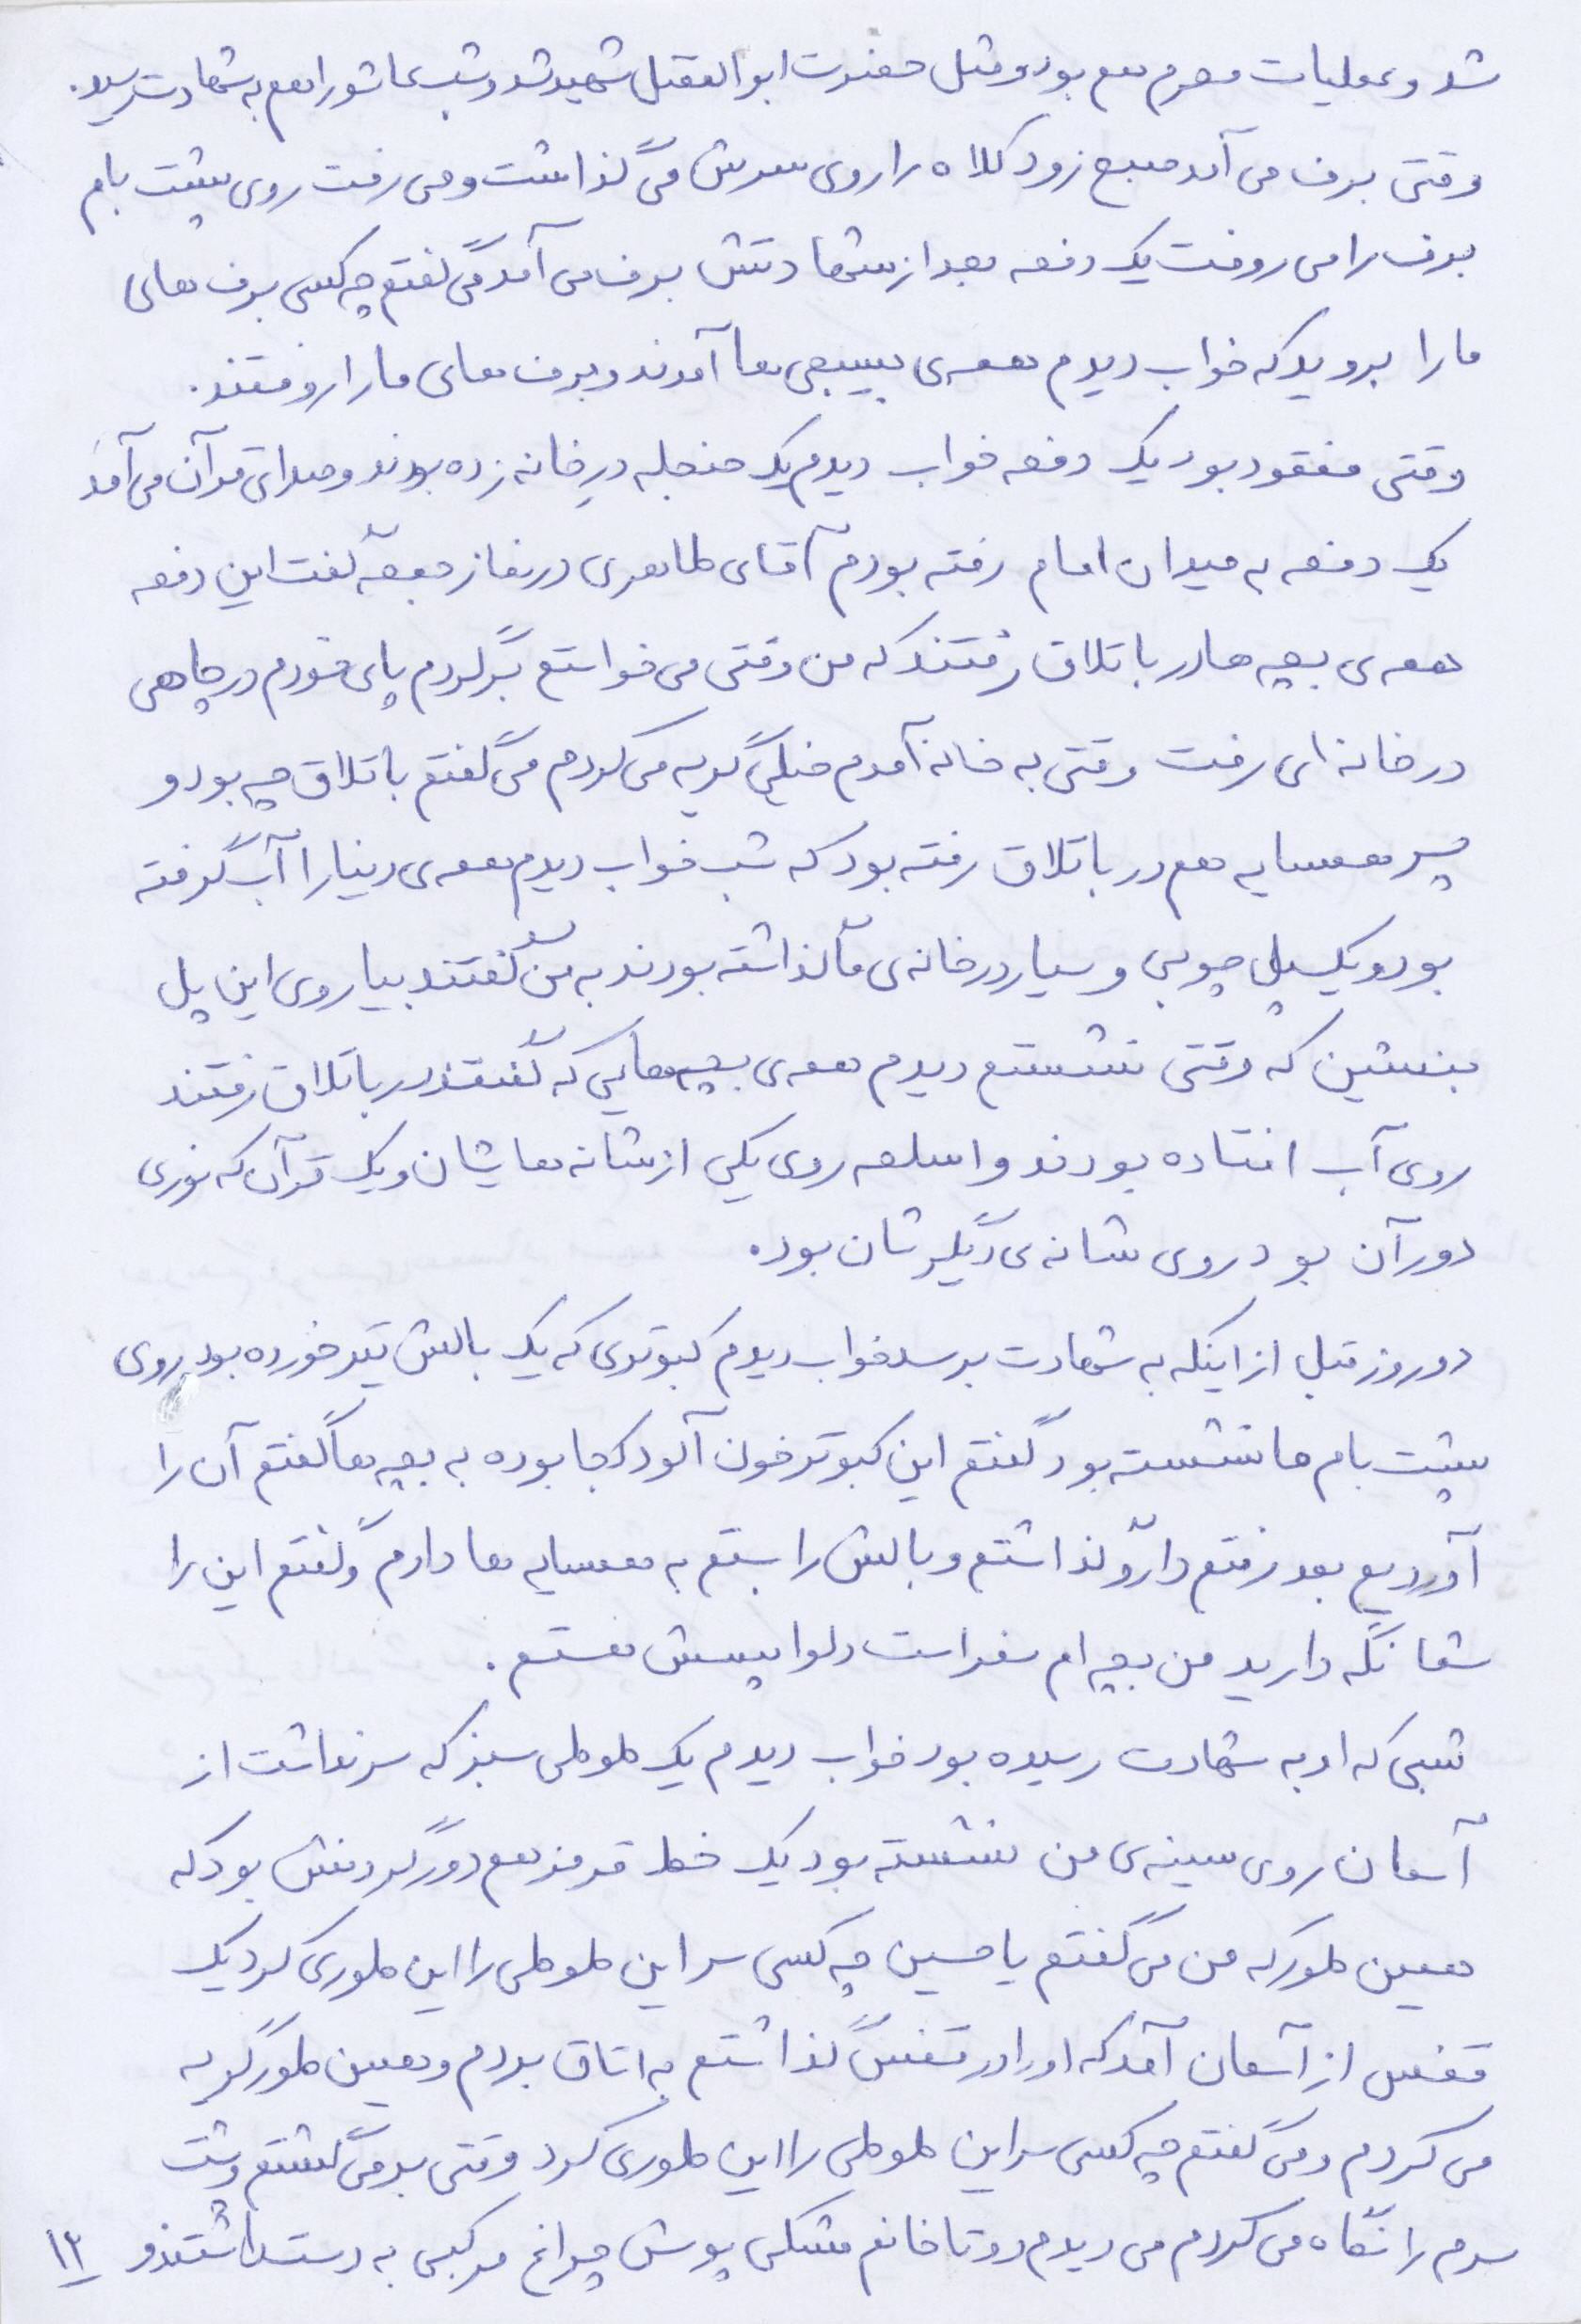 شد و عملیات محرم هم بود و مثل حضرت ابوالفضل شهید شد و شب عاشورا هم به شهادت رسید.
وقتی برف می آمد صبح زود کلاه را روی سرش می گذاشت و می رفت روی پشت بام
برف را می روفت یک دفعه بعد از شهادتش برف می آمد می گفتم چه کسی برف های
ما را بروبد که خواب دیدم همه ی بسیجی ها آمدند و برف های ما را روفتند.
وقتی مفقود بود یک دفعه خواب دیدم یک حنجله در خانه زده بودند و صدای قرآن می آمد
یک دفعه به میدان امام رفته بودم آقای طاهری در نماز جمعه گفت این دفعه
همه ی بچه ها در باتلاق رفتند که من وقتی می خواستم برگردم پای خودم در چاهی
در خانه ای رفت وقتی به خانه آمدم خیلی گریه می کردم می گفتم باتلاق چه بود و
پسر همسایه هم در باتلاق رفته بود که شب خواب دیدم همه ی دنیا را آب گرفته
بود و یک پل چوبی و سیار در خانه ی ما گذاشته بودند به من گفتند بیا روی این پل
بنشین که وقتی نشستم دیدم همه ی بچه هایی که گفتند در باتلاق رفتند
روی آب افتاده بودند و اسلحه روی یکی از شانه هایشان و یک قرآن که نوری
دور آن بود روی شانه ی دیگرشان بود.
دو روز قبل از اینکه به شهادت برسد خواب دیدم کبوتری که یک بالش تیر خورده بود روی
پشت بام ما نشسته بود گفتم این کبوتر خون آلود کجا بوده به بچه ها گفتم آن را
آوردیم بعد رفتم دارو گذاشتم و بالش را بستم به همسایه ها دادم و گفتم این را
شما نگه دارید من بچه ام سفر است دلواپسش هستم.
شبی که او به شهادت رسیده بود خواب دیدم یک طوطی سبز که سر نداشت از
آسمان روی سینه ی من نشسته بود یک خط قرمز هم دور گردنش بود که
همین طور که من می گفتم یا حسین چه کسی سر این طوطی را این طوری کرد یک
قفس از آسمان آمد که او را در قفس گذاشتم به اتاق بردم و همین طور گریه
می کردم و می گفتم چه کسی سر این طوطی را این طوری کرد وقتی برمی گشتم و پشت
سرم را نگاه می کردم می دیدم دو تا خانم مشکی پوش چراغ مرکبی به دست داشتند و ۱۳